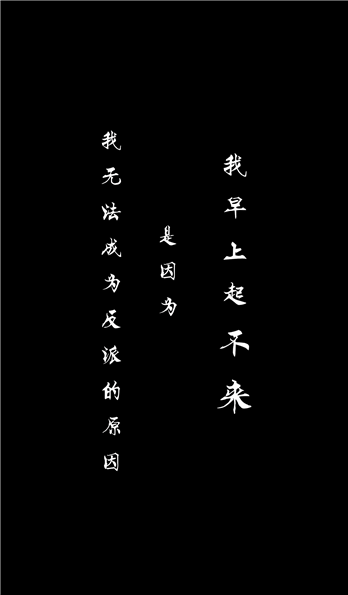 我无法成为反派的原因
是因为
我早上起不来